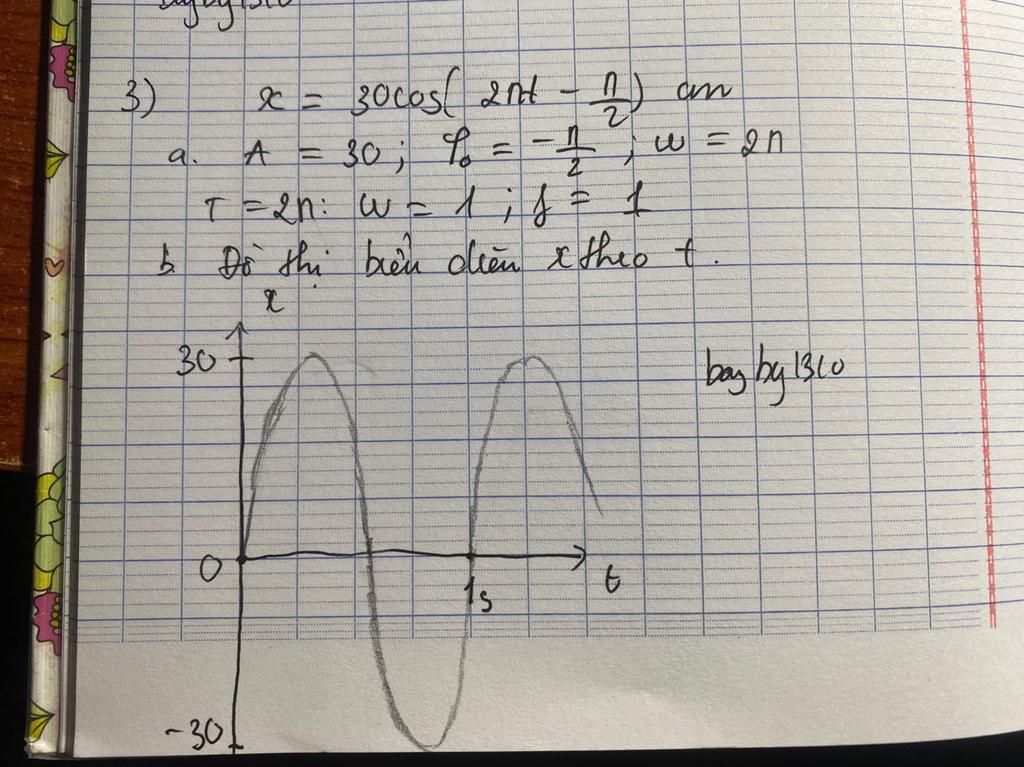 3) x = 30cos(2πt - π/2) cm
a. A = 30; φ₀ = -π/2; ω = 2π
T = 2π: ω = 1; f = 1
b. Đồ thị biểu diễn x theo t.
x
30
bayby1310
0
1s
t
-30